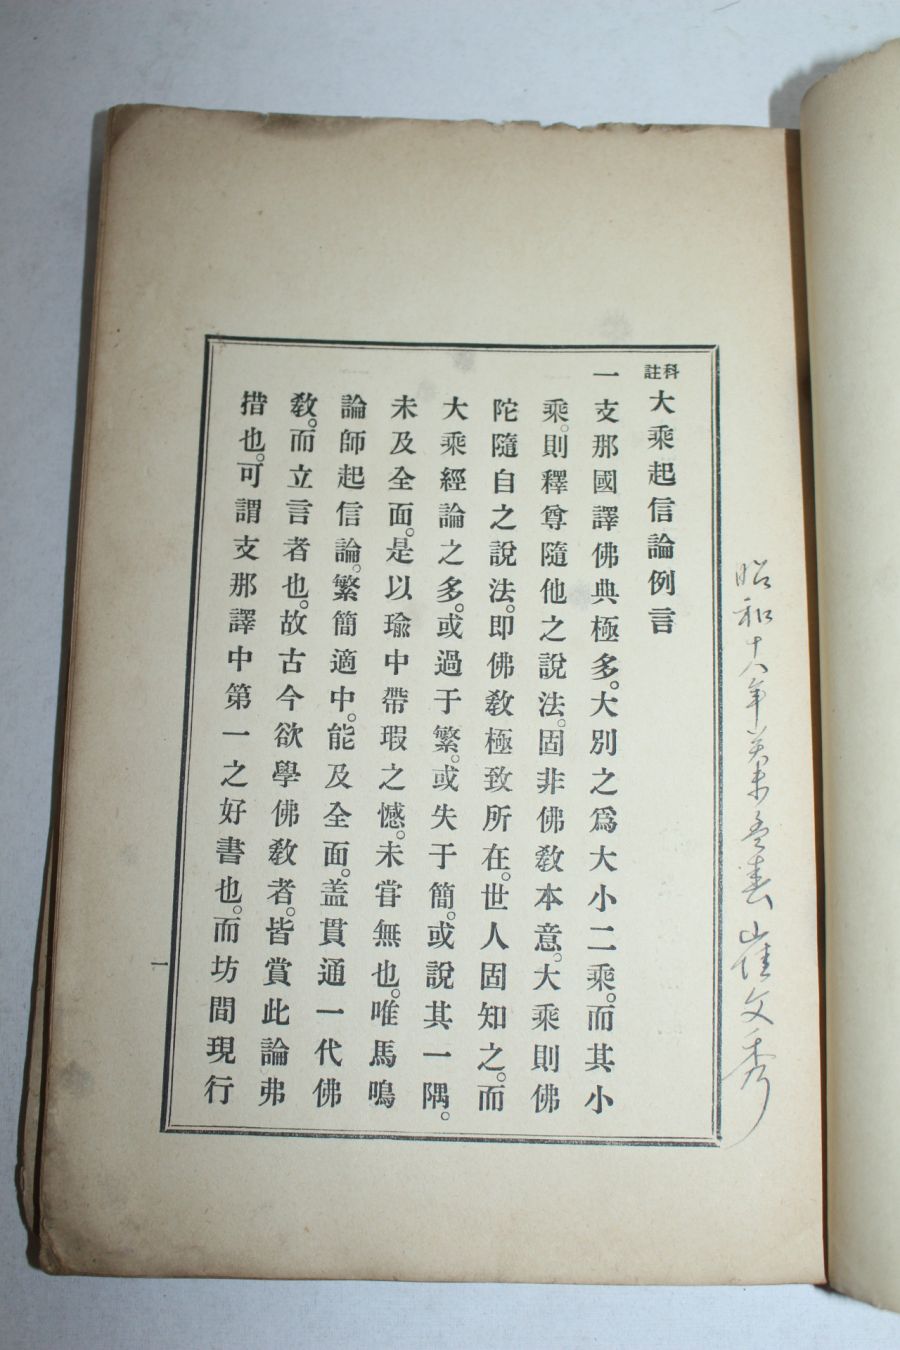 昭和十八年癸未孟春 崔文秀
科註大乘起信論例言
一支那國譯佛典極多。大別之爲大小二乘。而其小
乘。則釋尊隨他之說法。固非佛敎本意。大乘則佛
陀隨自之說法。卽佛敎極致所在。世人固知之。而
大乘經論之多。或過于繁。或失于簡。或說其一隅。
未及全面。是以瑜中帶瑕之憾。未甞無也。唯馬鳴
論師起信論。繁簡適中。能及全面。盖貫通一代佛
敎。而立言者也。故古今欲學佛敎者。皆賞此論弗
措也。可謂支那譯中第一之好書也。而坊間現行
一